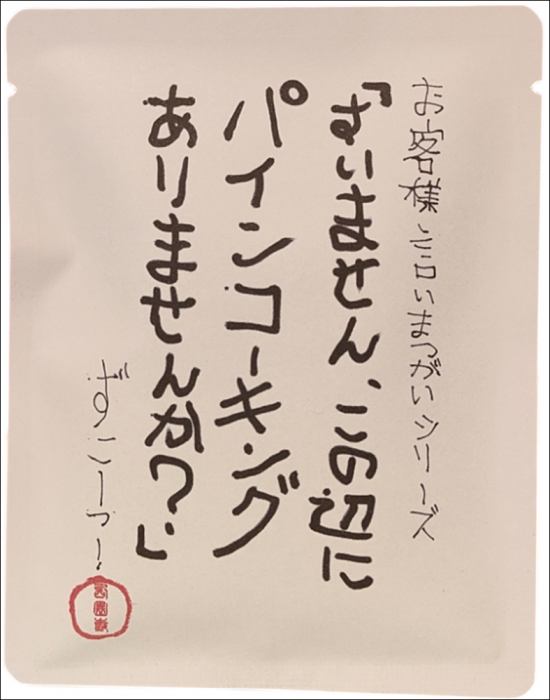 お客様言いまつがいシリーズ
「すいません、この辺に
パインコーキング
ありませんか？」
ずこーっ！